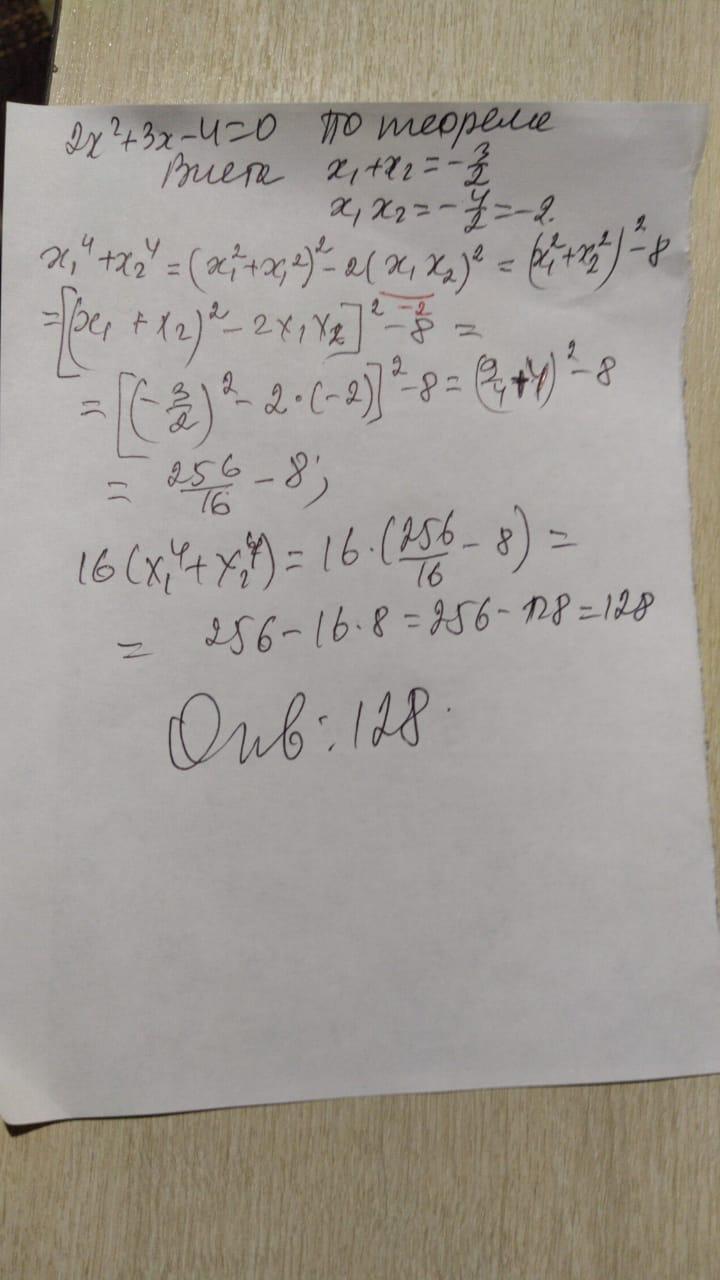 2x²+3x-4=0 По теореме
Виета x₁+x₂=-3/2
x₁x₂=-4/2=-2.
x₁⁴+x₂⁴=(x₁²+x₁²)²-2(x₁x₂)²=(x₁²+x₂²)²-8
-2
=[(x₁+x₂)²-2x₁x₂]²-8=
=[(-3/2)²-2·(-2)]²-8=(9/4+4)²-8
=256/16-8;
16(x₁⁴+x₂⁴)=16·(256/16-8)=
=256-16·8=256-128=128
Отв: 128.